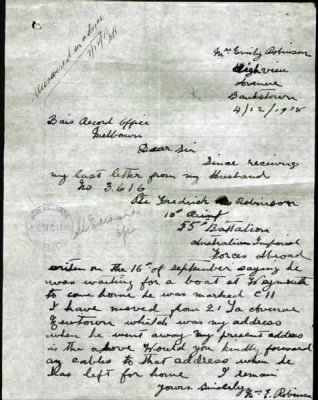 Answered on above
Mrs Emily Robinson
Highview
Avenue
Bankstown
4/12/1918
Bais Record Office
Melbourn
Dear Sir
Since receiving
my last letter from my Husband
No. 3616
Pte Fredrick Robinson
10th Reinf
55th Battalion
Australian Imperial
Forces Abroad
writen on the 16th of september saying he
was waiting for a boat at Weymouth
to come home he was marked C11
I have moved from 21 avenue
which was my address
when he went away my present address
is the above Would you kindly forward
any cables to that address when he
has left for home I remain
Yours Sinderly
Mrs E. Robinson